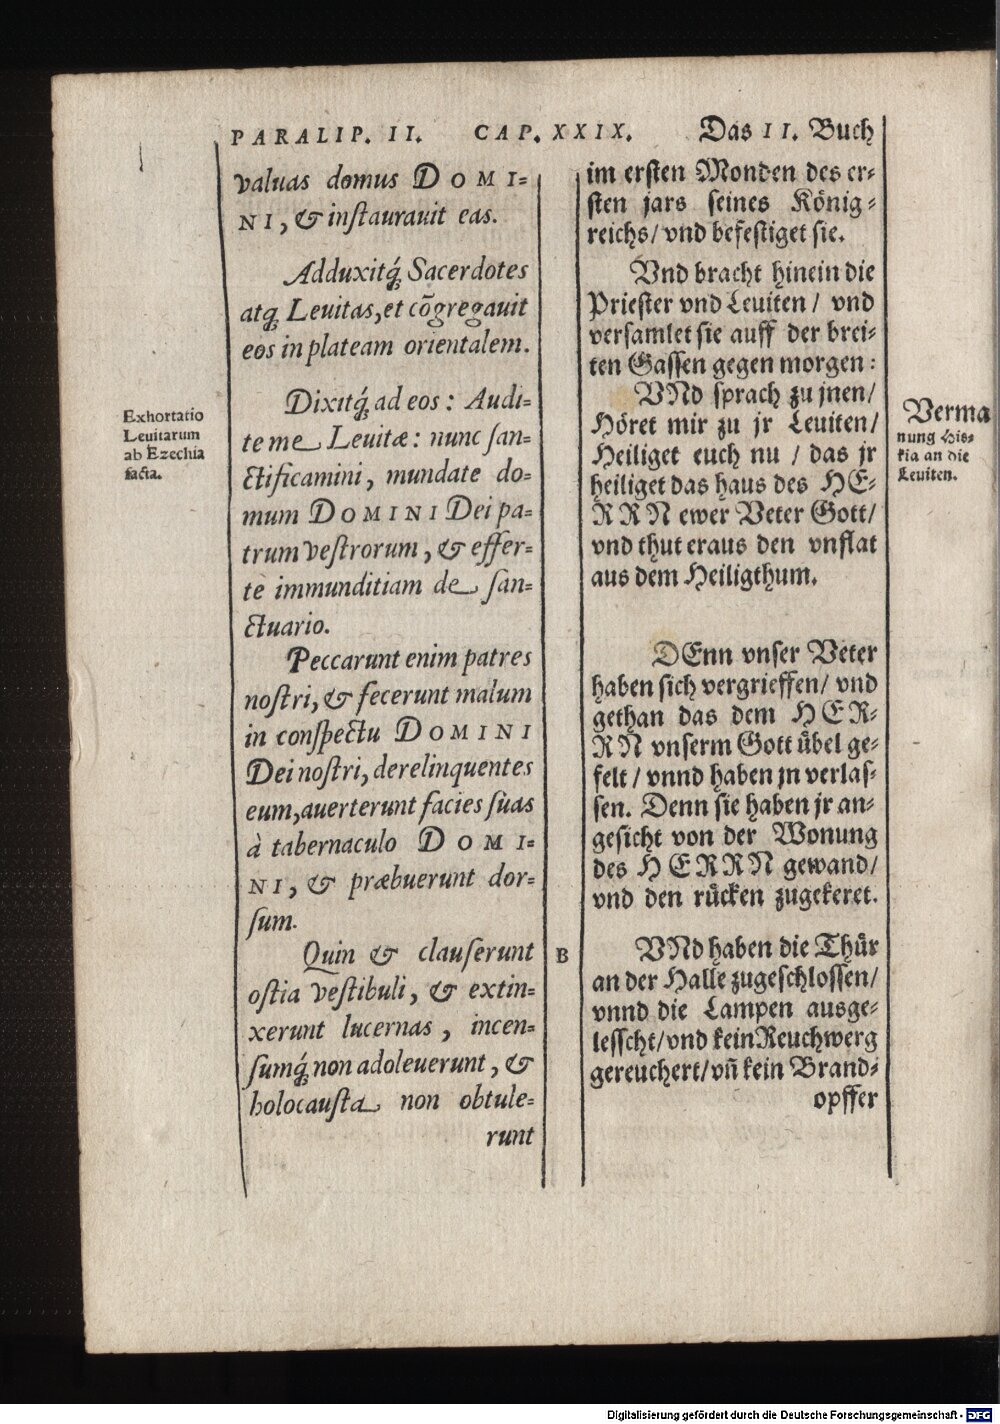 PARALIP. II. CAP. XXIX. Das II. Buch
valuas domus DOMI-
NI, & instaurauit eas.
Adduxitq́; Sacerdotes
atq; Leuitas, et cõgregauit
eos in plateam orientalem.
Dixitq́; ad eos: Audi-
te me Leuitæ: nunc san-
ctificamini, mundate do-
mum DOMINI Dei pa-
trum vestrorum, & effer-
te immunditiam de san-
ctuario.
Peccarunt enim patres
nostri, & fecerunt malum
in conspectu DOMINI
Dei nostri, derelinquentes
eum, auerterunt facies suas
à tabernaculo DOMI-
NI, & præbuerunt dor-
sum.
Quin & clauserunt
ostia vestibuli, & extin-
xerunt lucernas, incen-
sumq́; non adoleuerunt, &
holocausta non obtule-
runt
Exhortatio
Leuitarum
ab Ezechia
facta.
B
im ersten Monden des er-
sten jars seines König-
reichs/ vnd befestiget sie.
Vnd bracht hinein die
Priester vnd Leuiten/ vnd
versamlet sie auff der brei-
ten Gassen gegen morgen:
VNd sprach zu jnen/
Höret mir zu jr Leuiten/
Heiliget euch nu / das jr
heiliget das haus des HE-
RRN ewer Veter Gott/
vnd thut eraus den vnflat
aus dem Heiligthum.
DEnn vnser Veter
haben sich vergrieffen/ vnd
gethan das dem HER-
RN vnserm Gott übel ge-
felt / vnnd haben jn verlas-
sen. Denn sie haben jr an-
gesicht von der Wonung
des HERRN gewand/
vnd den rücken zugekeret.
VNd haben die Thür
an der Halle zugeschlossen/
vnnd die Lampen ausge-
lesscht/ vnd kein Reuchwerg
gereuchert/ vñ kein Brand-
opffer
Verma
nung His-
kia an die
Leuiten.
Digitalisierung gefördert durch die Deutsche Forschungsgemeinschaft - DFG